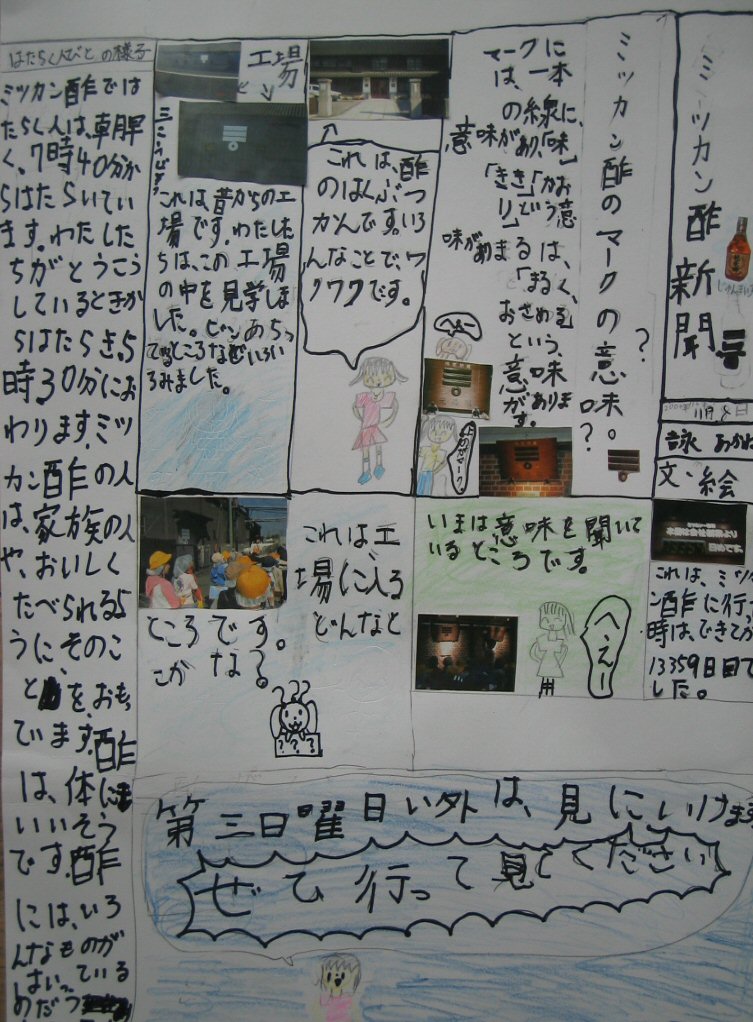 ミツカン酢新聞
11月8日
文・絵
ミツカン酢のマークの意味。
?
?
マークに
は、一本
の線に、
意味があり、「味」
「きき」「かお
り」という意
味があまるは、
「まるく、
おさめる」
という、
意味
があります。
へえー
これは、酢
のはくぶつ
かんです。いろ
んなことで、ワ
クワクです。
工場
これは昔からの工
場です。わたした
ちは、この工場
の中を見学しま
した。ビンあちっ
てるところなどいろい
ろみました。
はたらく人びとの様子
ミツカン酢では
たらく人は、車朝早
く、7時40分か
らはたらいてい
ます。わたした
ちがとうこう
しているときか
らはたらき、5
時30分にお
わります。ミツ
カン酢の人
は、家族の人
や、おいしく
たべられるよ
うに、そのこ
とを、おもっ
ています。酢
は、体に
いいそう
です。酢
には、いろ
んなものが
はいっている
めだつ
これは、ミツカ
ン酢に行っ
時は、できてか
13359日目で
した。
いまは意味を聞いて
いるところです。
へえー
これは、工
場に入る
ところです。
どんなと
こかなる。
???
第三日曜日い外は、見にいけます
ぜひ行って見てください